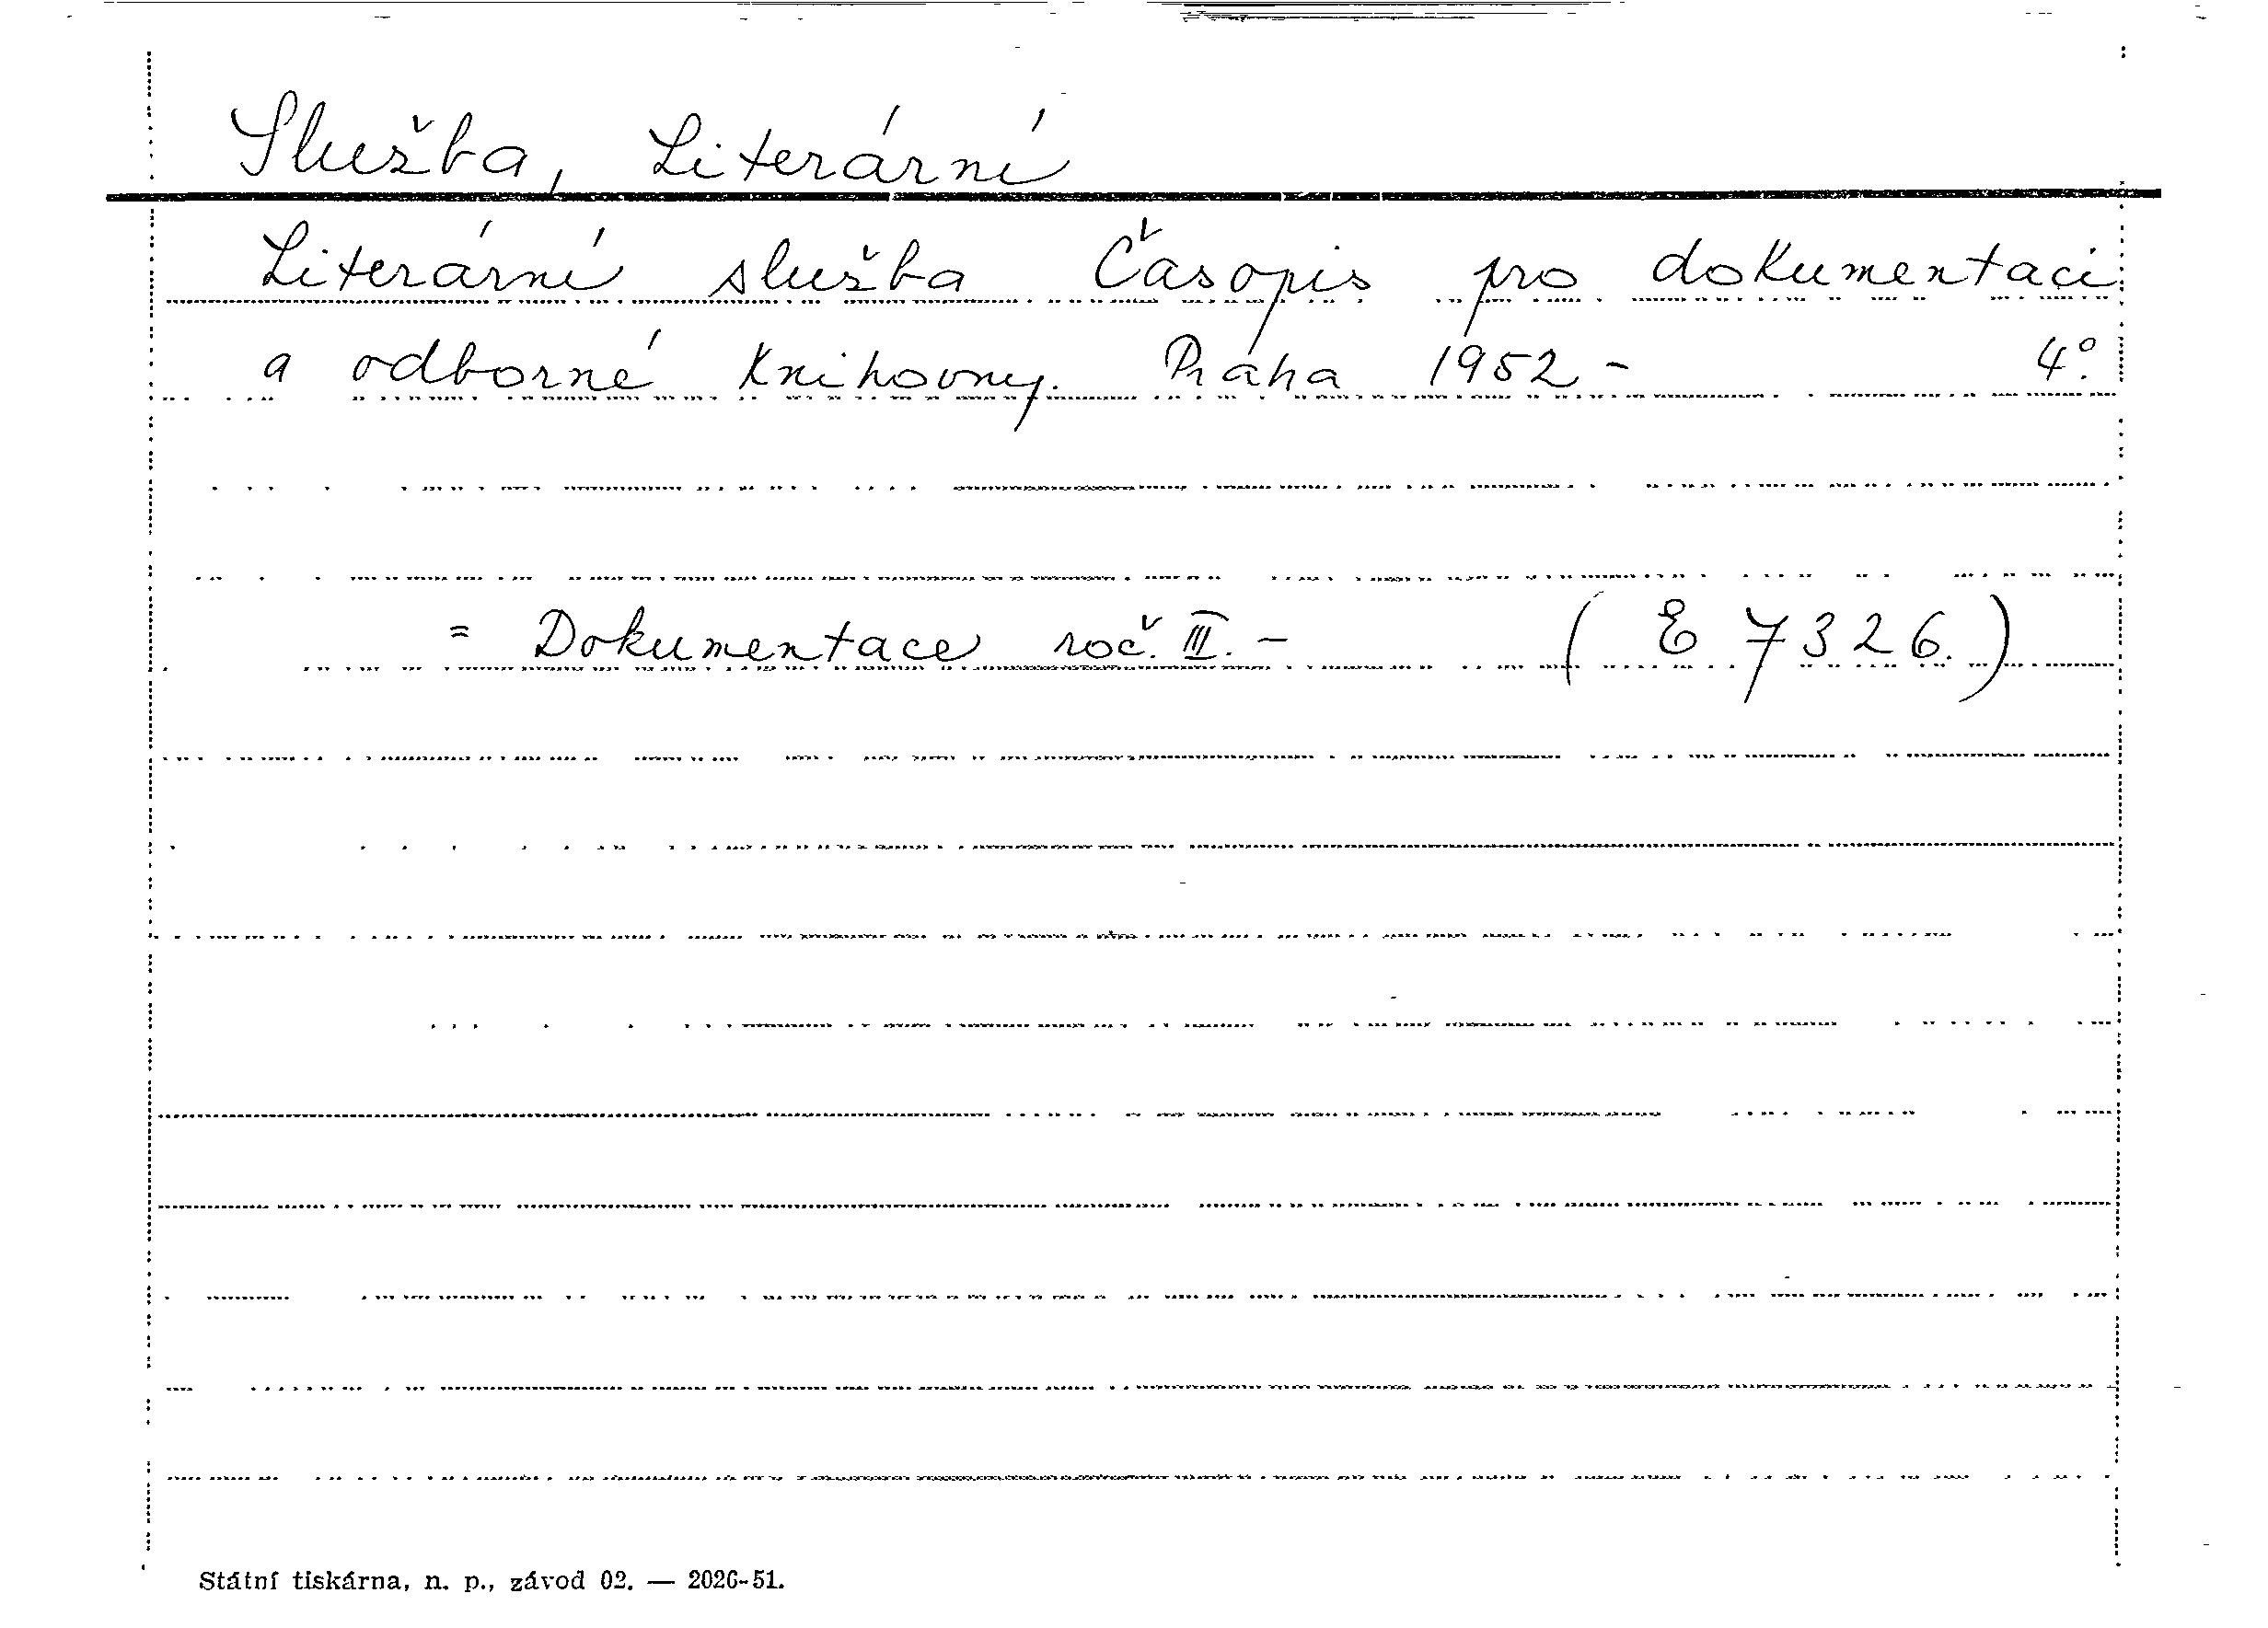 Služba, Literární
Literární služba Časopis pro dokumentaci
a odborné knihovny. Praha 1952 - 4°.
= Dokumentace roč. III. - ( E 7326. )
Státní tiskárna, n. p., závod 02. — 2026-51.